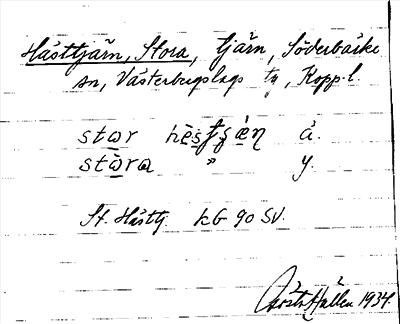 Hästtjärn, Stora, tjärn, Söderbärke
sn, Västerbergslags tg, Kopp. l.
stɷr hɛ̀sṭʂæ̀ṇ ä.
stɷ̀ra " y.
St. Hästtj. LG 90 SV.
Hallen 1934.